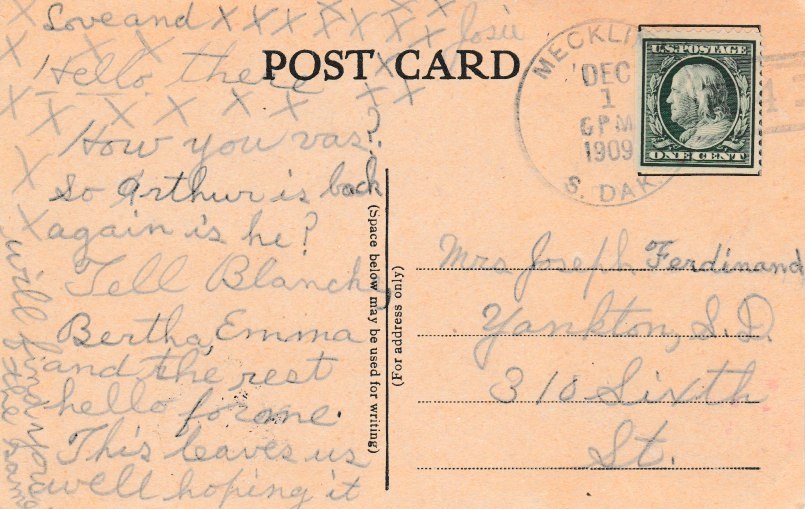 Love and X X X X X X X X Josie
Hello there
How you vas?
So Arthur is back
again is he?
Tell Blanche,
Bertha, Emma
and the rest
hello for me.
This leaves us
well hoping it
will find you
the same
POST CARD
(Space below may be used for writing)
(For address only)
MECKLI
DEC
1
6 PM
1909
S. DAK
U.S. POSTAGE
ONE CENT
Mrs Joseph Ferdinand
Yankton, S.D.
310 Sixth
St.